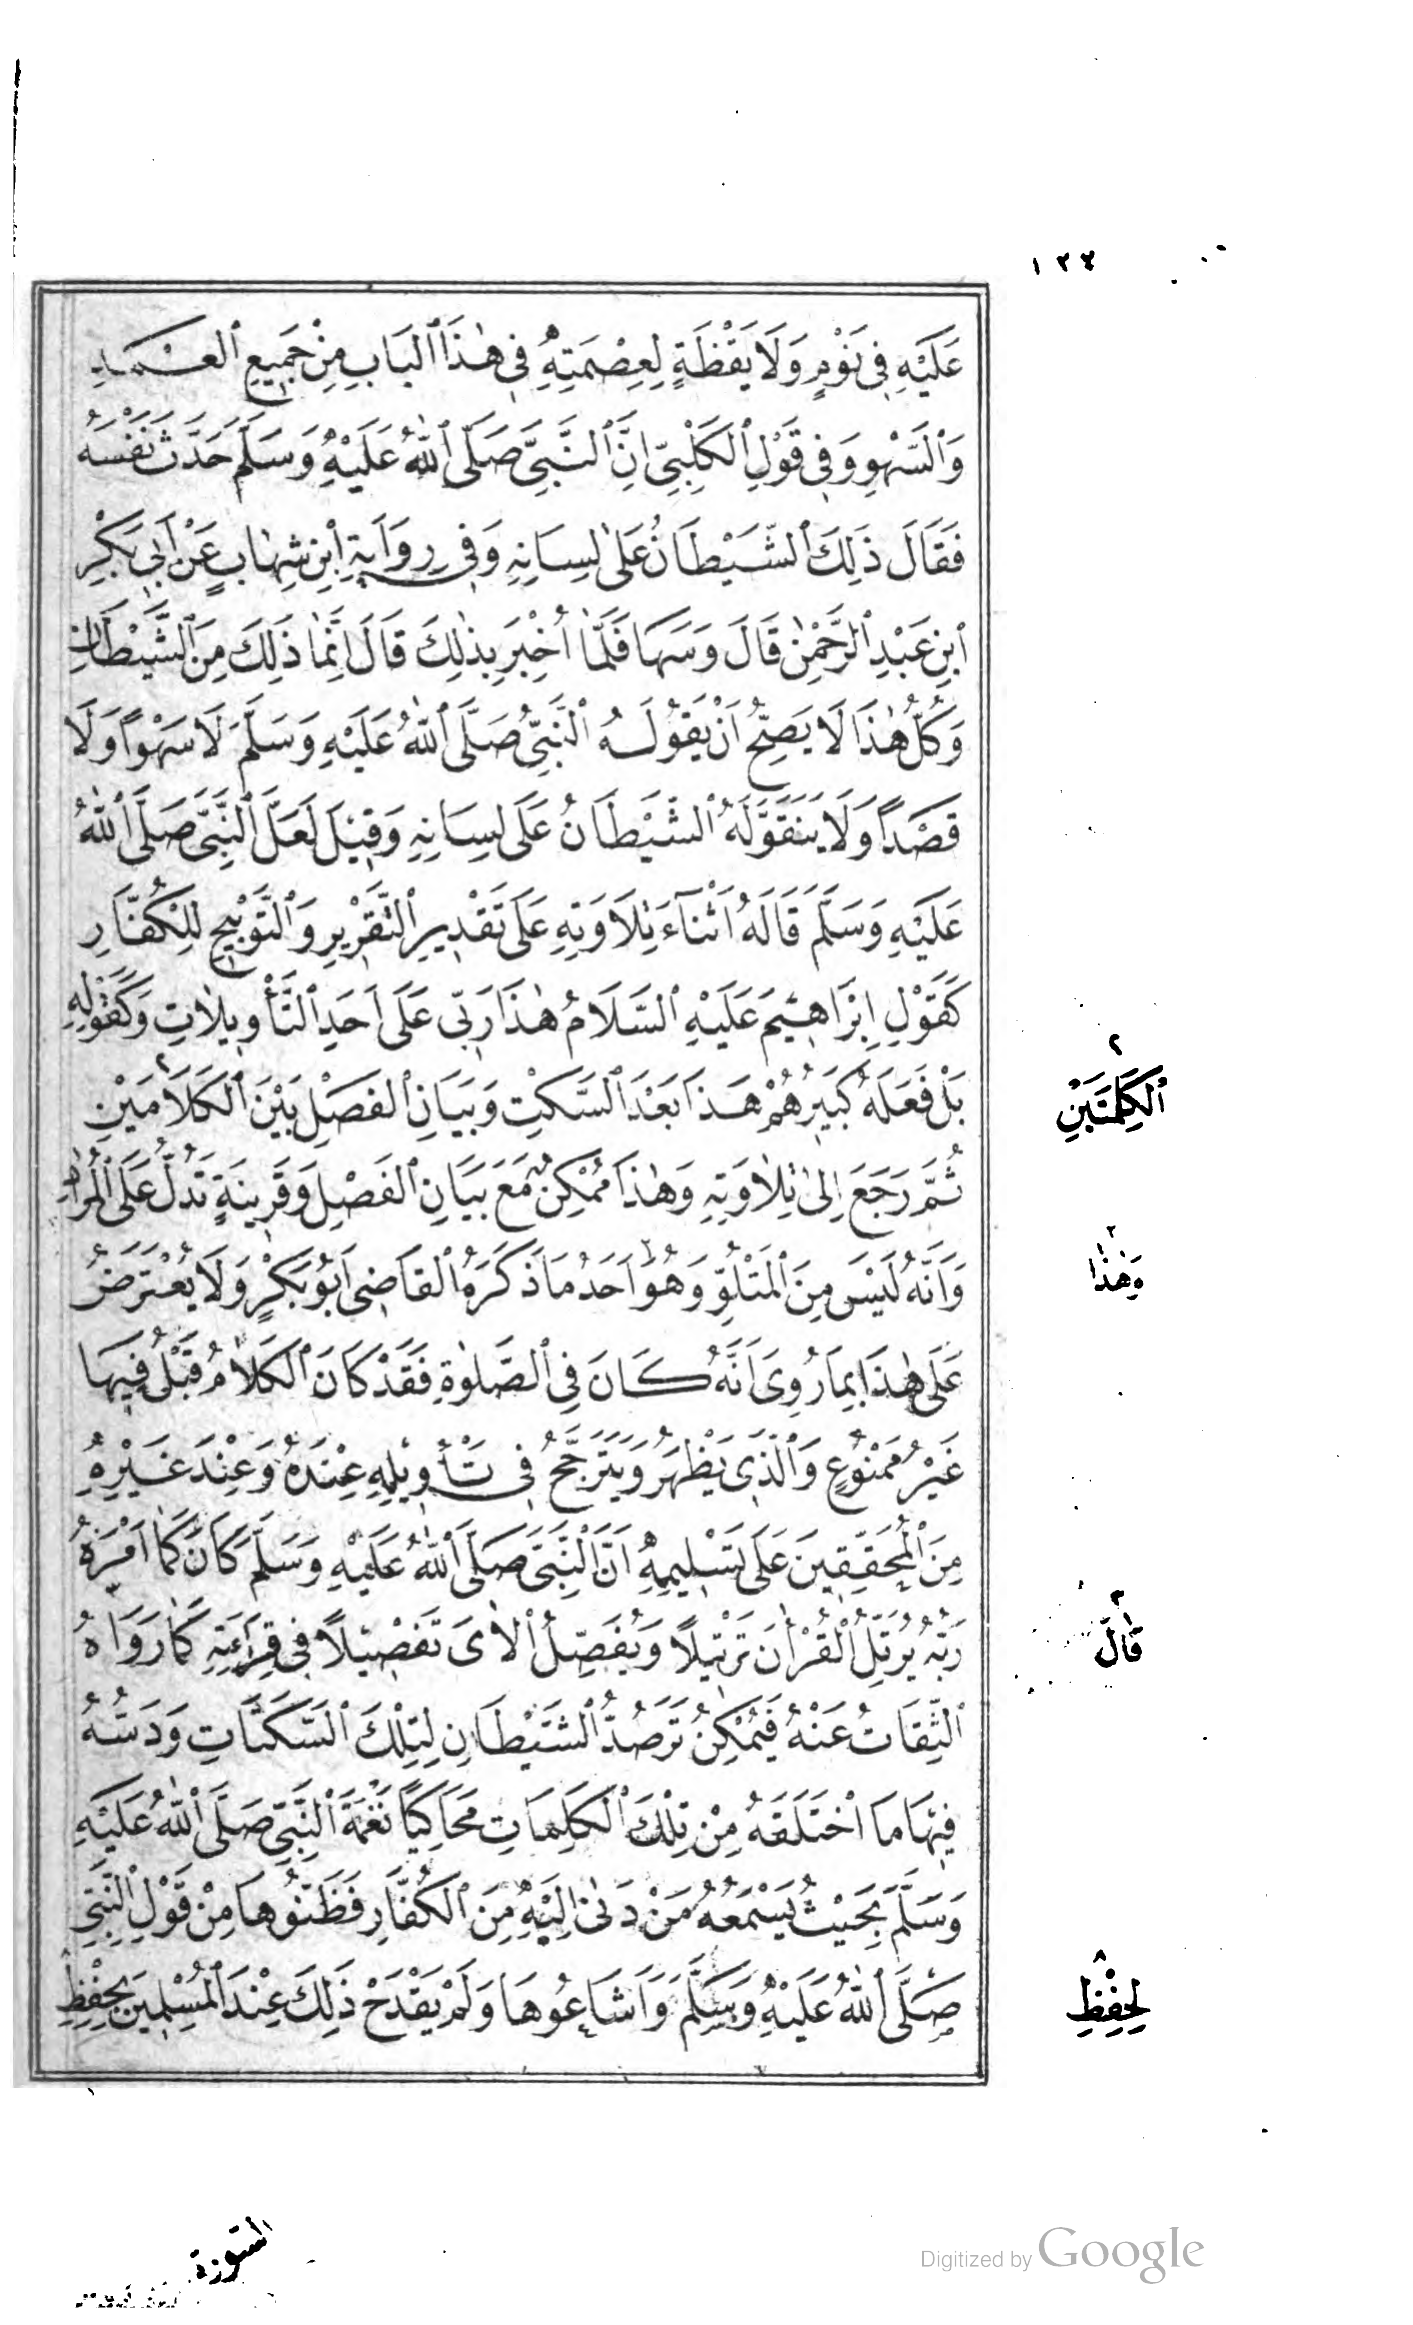 ١٣٣
عَلَيْهِ فِي نَوْمٍ وَلَا يَقْظَةٍ لِعِصْمَتِهِ فِي هٰذَا ٱلْبَابِ مِنْ جَمِيعِ ٱلْعَمْدِ
وَٱلسَّهْوِ وَفِي قَوْلِ ٱلْكَلْبِيِّ اِنَّ ٱلنَّبِيَّ صَلَّى ٱللّٰهُ عَلَيْهِ وَسَلَّمَ حَدَّثَ نَفْسَهُ
فَقَالَ ذَلِكَ ٱلشَّيْطَانُ عَلَى لِسَانِهِ وَفِي رِوَايَةِ ٱبْنِ شِهَابٍ عَنْ اَبِى بَكْرِ
ٱبْنِ عَبْدِ ٱلرَّحْمٰنِ قَالَ وَسَهَا فَلَمَّا اُخْبِرَ بِذٰلِكَ قَالَ اِنَّمَا ذَلِكَ مِنَ ٱلشَّيْطَانِ
وَكُلُّ هٰذَا لَا يَصِحُّ اَنْ يَقُولَهُ ٱلنَّبِيُّ صَلَّى ٱللّٰهُ عَلَيْهِ وَسَلَّمَ لَا سَهْوًا وَلَا
قَصْدًا وَلَا يَتَقَوَّلَهُ ٱلشَّيْطَانُ عَلَى لِسَانِهِ وَقِيلَ لَعَلَّ ٱلنَّبِيَّ صَلَّى ٱللّٰهُ
عَلَيْهِ وَسَلَّمَ قَالَهُ اَثْنَآءَ تِلَاوَتِهِ عَلَى تَقْدِيرِ ٱلتَّقْرِيرِ وَٱلتَّوْبِيخِ لِلْكُفَّارِ
كَقَوْلِ اِبْرَاهِيمَ عَلَيْهِ ٱلسَّلَامُ هٰذَا رَبِّى عَلَى اَحَدِ ٱلتَّأْوِيلَاتِ وَكَقَوْلِهِ
بَلْ فَعَلَهُ كَبِيرُهُمْ هَذَا بَعْدَ ٱلسَّكْتِ وَبَيَانِ ٱلْفَصْلِ بَيْنَ ٱلْكَلَامَيْنِ
٢
ٱلْكَلِمَتَيْنِ
ثُمَّ رَجَعَ اِلَى تِلَاوَتِهِ وَهٰذَا مُمْكِنٌ مَعَ بَيَانِ ٱلْفَصْلِ وَقَرِينَةٍ تَدُلُّ عَلَى ٱلْمُرَادِ
وَاَنَّهُ لَيْسَ مِنَ ٱلْمَتْلُوِّ وَهُوَ اَحَدُ مَا ذَكَرَهُ ٱلْقَاضِى اَبُو بَكْرٍ وَلَا يُعْتَرَضُ
٢
وَهٰذَا
عَلَى هٰذَا بِمَا رُوِىَ اَنَّهُ كَانَ فِي ٱلصَّلٰوةِ فَقَدْ كَانَ ٱلْكَلَامُ قَبْلُ فِيهَا
غَيْرَ مَمْنُوعٍ وَٱلَّذِى يَظْهَرُ وَيَتَرَجَّحُ فِي تَأْوِيلِهِ عِنْدَهُ وَعِنْدَ غَيْرِهِ
مِنَ ٱلْمُحَقِّقِينَ عَلَى تَسْلِيمِهِ اَنَّ ٱلنَّبِيَّ صَلَّى ٱللّٰهُ عَلَيْهِ وَسَلَّمَ كَانَ كَمَا اَمَرَهُ
رَبُّهُ يُرَتِّلُ ٱلْقُرْاٰنَ تَرْتِيلًا وَيُفَصِّلُ ٱلْاٰىَ تَفْصِيلًا فِي قِرَاءَتِهِ كَمَا رَوَاهُ
٣
قَالَ
ٱلثِّقَاتُ عَنْهُ فَيُمْكِنُ تَرَصُّدُ ٱلشَّيْطَانِ لِتِلْكَ ٱلسَّكَتَاتِ وَدَسُّهُ
فِيهَا مَا ٱخْتَلَقَهُ مِنْ تِلْكَ ٱلْكَلِمَاتِ مُحَاكِيًا نَغْمَةَ ٱلنَّبِيِّ صَلَّى ٱللّٰهُ عَلَيْهِ
وَسَلَّمَ بِحَيْثُ يَسْمَعُهُ مَنْ دَنٰى اِلَيْهِ مِنَ ٱلْكُفَّارِ فَظَنُّوهَا مِنْ قَوْلِ ٱلنَّبِيِّ
صَلَّى ٱللّٰهُ عَلَيْهِ وَسَلَّمَ وَاَشَاعُوهَا وَلَمْ يَقْدَحْ ذَلِكَ عِنْدَ ٱلْمُسْلِمِينَ بِحِفْظِ
٨
لِحِفْظِ
السورة
Digitized by Google